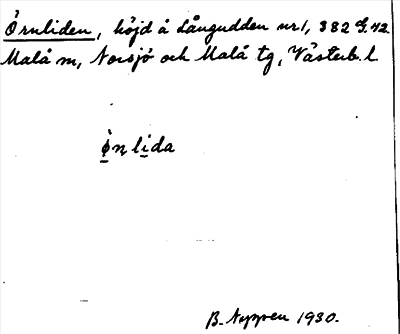 Örnliden, höjd å Långudden nr 1, 382 G. 42.
Malå m, Norsjö och Malå tg, Västerb. l.
ø̀n lida
B. Nyppen 1930.